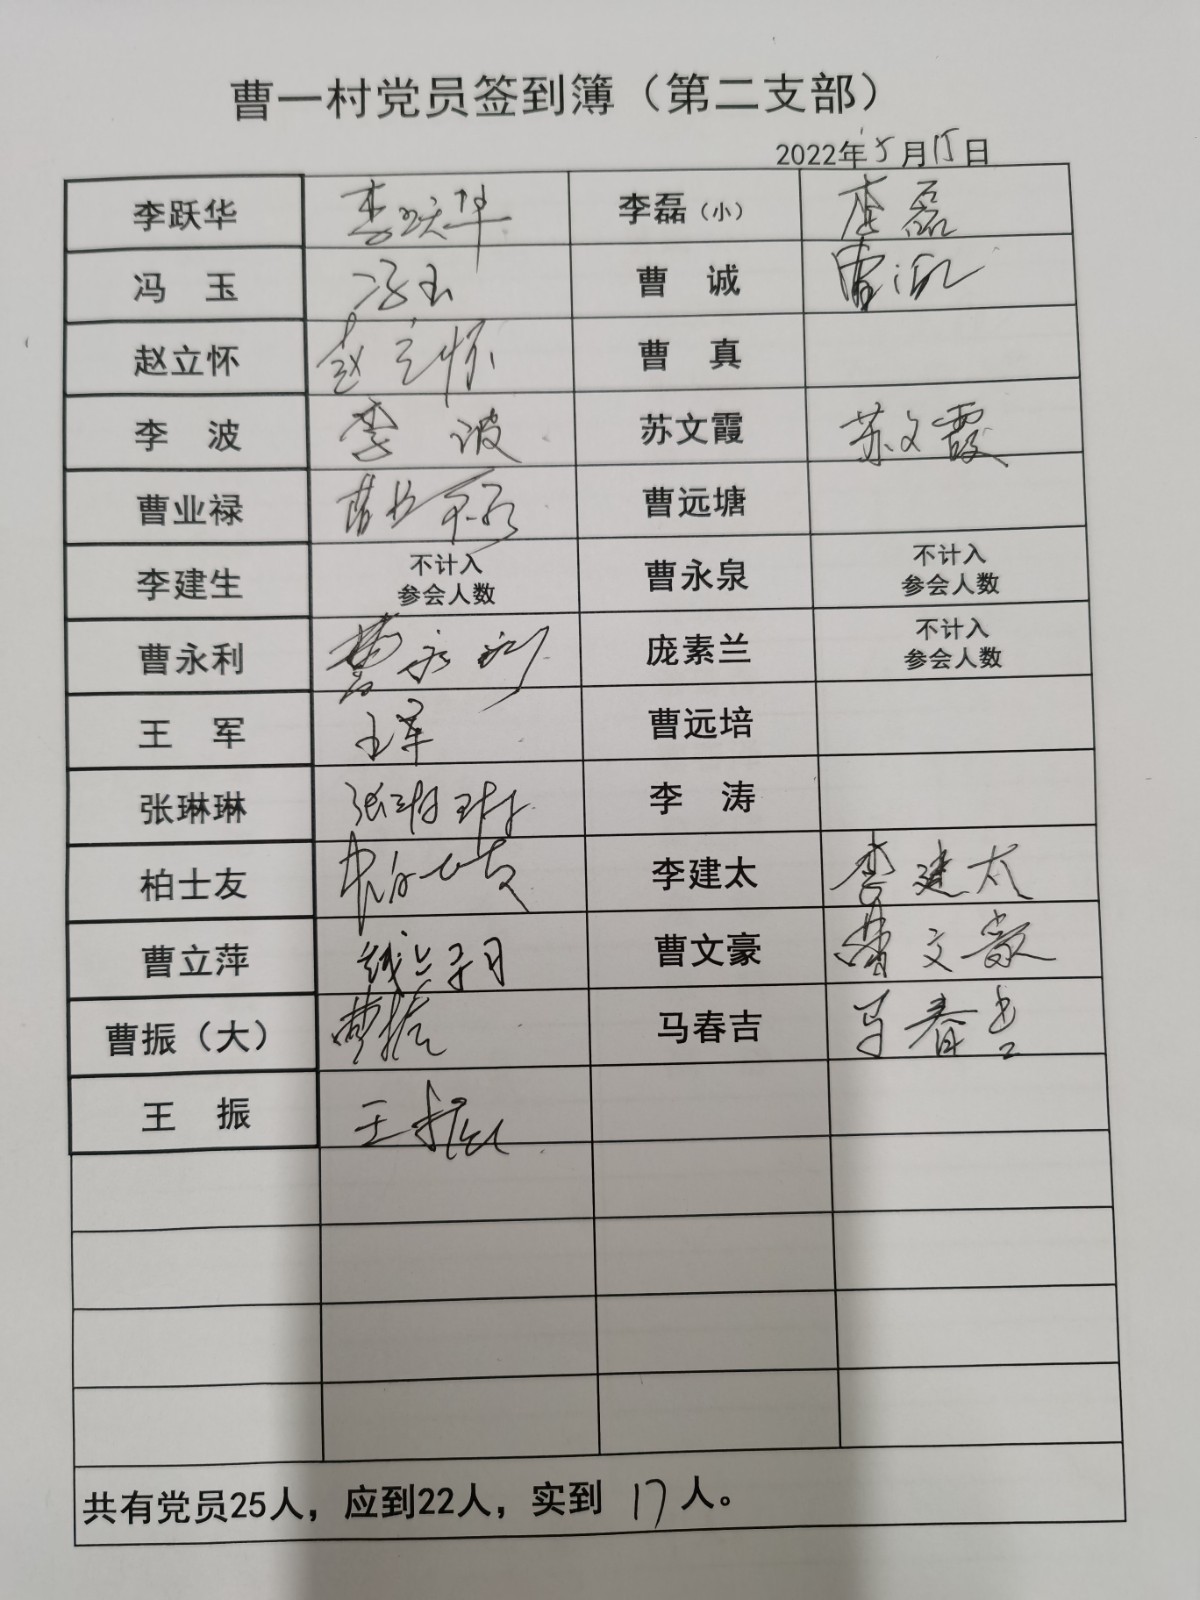 曹一村党员签到簿（第二支部）
2022年5月15日
李跃华 李跃华 李磊（小） 李磊
冯玉 冯玉 曹诚 曹诚
赵立怀 赵立怀 曹真
李波 李波 苏文霞 苏文霞
曹业禄 曹业禄 曹远塘
李建生 不计入 曹永泉 不计入
参会人数 参会人数
曹永利 曹永利 庞素兰 不计入
参会人数
王军 王军 曹远培
张琳琳 张琳琳 李涛
柏士友 柏士友 李建太 李建太
曹立萍 曹文豪 曹文豪
曹振（大） 曹振 马春吉 马春吉
王振 王振
共有党员25人，应到22人，实到 17 人。